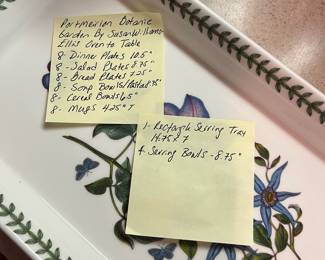 Portmeirion Botanic
Garden By Susan Williams-
Ellis Oven to Table
8- Dinner Plates 10.5"
8- Salad Plates 8.75"
8- Bread Plates 7.25"
8- Soup Bowls/Pasta 8.75"
8- Cereal Bowls 6.5"
8- Mugs 4.25" T
1- Rectangle Serving Tray
14.75 x 7
4 Serving Bowls - 8.75"